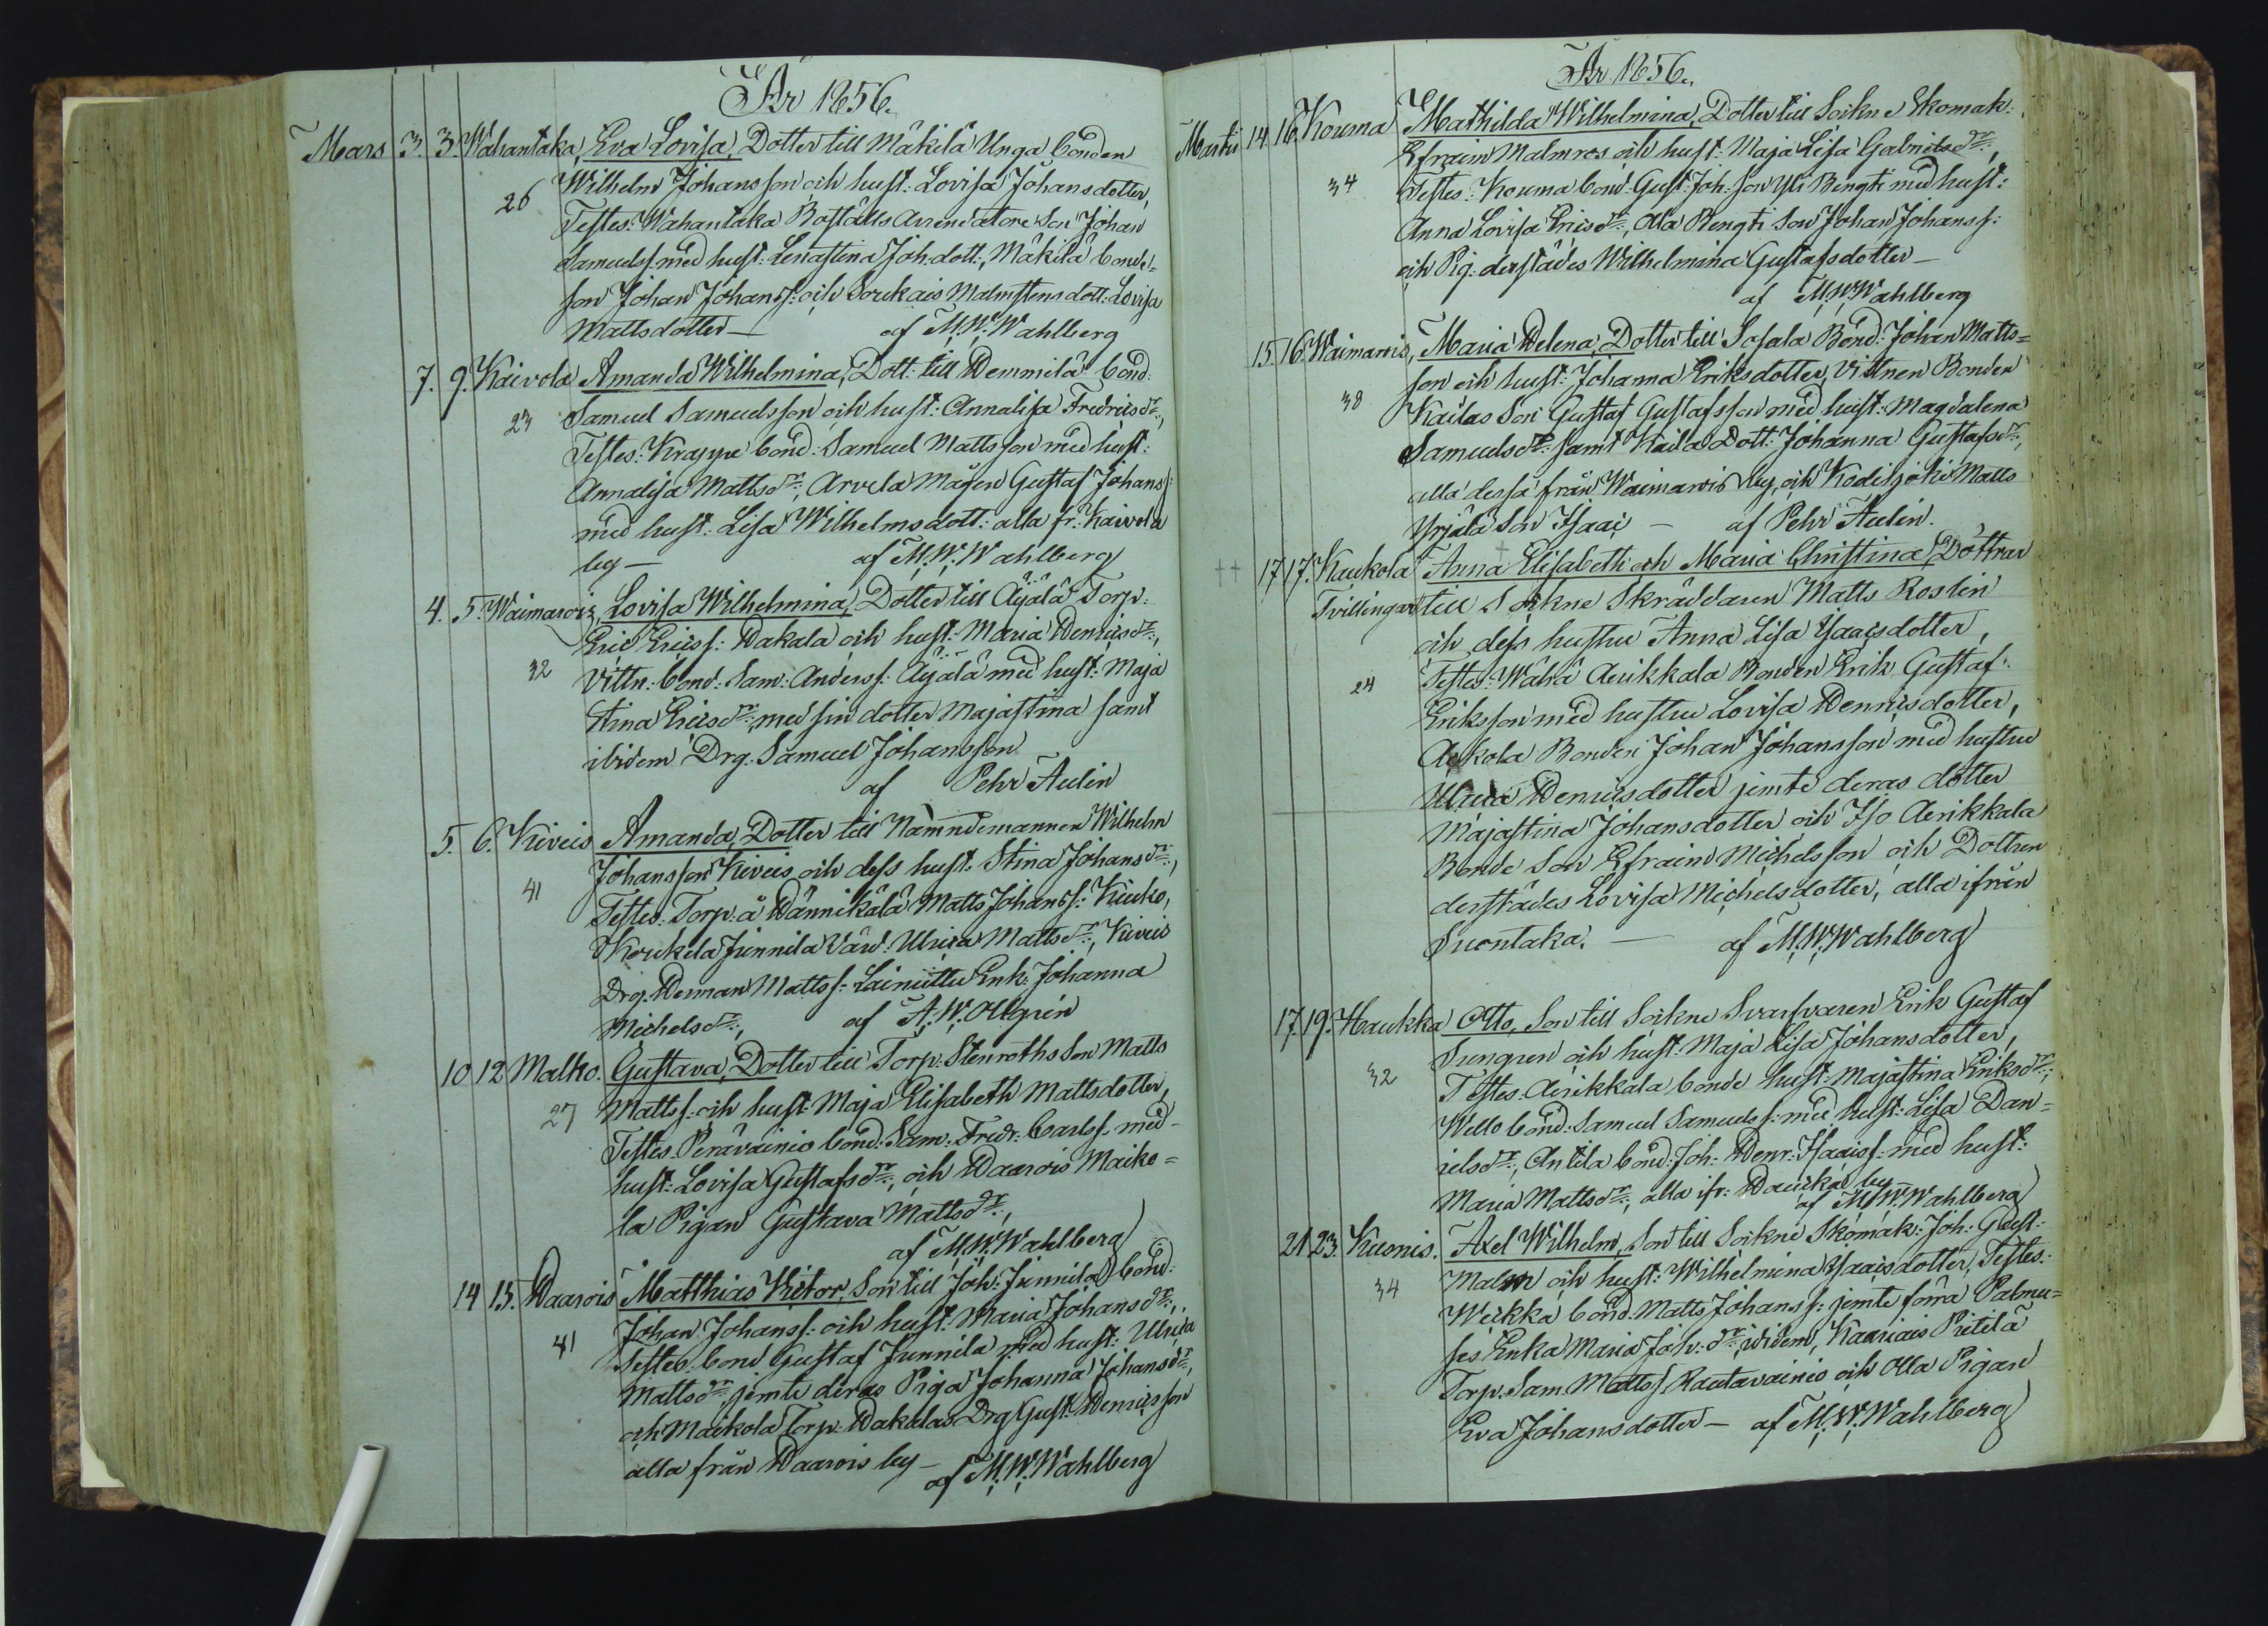 År 1856.
Mars 3. 3. Wahantaka, Eva Lovisa, Dotter till Mäkilä Unga bonden
26 Wilhelm Johansson och hust: Lovisa Johansdotter,
Testes: Wahantaka Boställs Arrendatore Son Johan
Samuelss. med hust: Lenastina Joh:dott:, Mäkilä bonde-
son Johan Johanss: och Soukais Malmstens dott: Lovisa
Mattsdotter — af M.W.Wahlberg
7. 9. Kaivola Amanda Wilhelmina, Dott: till Hemmilä bond:
23 Samuel Samuelsson och hust: Annalisa Fredricsdr:,
Testes: Krappe bond: Samuel Mattsson med hust:
Annalisa Mattsdr:, Arvela Mågen Gustaf Johanss:
med hust: Lisa Wilhelmsdott: alla fr: Kaivola
by — af M.W.Wahlberg
4. 5. Waimaroiz, Lovisa Wilhelmina, Dotter till Äijälä Torp:
Eric Ericss: Hakala och hust: Maria Henricsdr:,
32 Vittn: bond: Sam: Anderss: Äijälä med hust: Maja
Stina Ericsdr: med sin dotter Majastina samt
ibidem Drg. Samuel Johansson
af Pehr Aulin
5. 6. Kiveis Amanda, Dotter till Nämndemannen Wilhelm
41 Johansson Kiveis och dess hust: Stina Johansdr:,
Testes: Torp: å Hännikälä Matts Johanss: Kiuko,
Koukela Junnila Värd: Ulrica Mattsdr:, Kiveis
Drg. Herman Mattss: Lainiittu Enk: Johanna
Michelsdr:, af A.W.Ollgrén
10 12 Malko. Gustava, Dotter till Torp: Stenroths Son Matts
27 Mattss: och hust: Maja Elisabeth Mattsdotter,
Testes: Perävainio bond: Sam: Fredr: Carlss: med
hust: Lovisa Gustafsdr:, och Haarois Maiko-
la Pigan Gustava Mattsdr:,
af M.W.Wahlberg
14 15. Haarois Matthias Victor, Son till Joh: Junnila bond:
41 Johan Johanss: och hust: Maria Johansdr:,
Testes: bond Gustaf Junnila med hust: Ulrica
Mattsdr: jemte deras Piga Johanna Johansdr:,
och Maikola Torp: Hakalas Drg Gust: Henricsson
alla från Haarois by — af M.W.Wahlberg
År 1856.
Martii 14 16. Kouma Mathilda Wilhelmina, Dotter till Sockne Skomak:
Efraim Malmros och hust: Maja Lisa Gabrielsdr:,
34 Testes: Kouma bond: Gust: Joh:son Yli Bengti med hust:
Anna Lovisa Ericsdr:, Ala Bengti Son Johan Johanss:
och Pig: derstädes Wilhelmina Gustafsdotter —
af M.W.Wahlberg
15 16. Waimarois, Maria Helena, Dotter till Safala Bond: Johan Matts-
son och hust: Johanna Eriksdotter, Vittnen Bonden
38 Kailas Son Gustaf Gustafsson med hust: Magdalena
Samuelsdr: samt Kaila Dott: Johanna Gustafsdr:,
alla dessa från Waimarois by, och Kodisjoki Matts
Yrjälä Son Isaac — af Pehr Aulin.
†† 17 17. Kaukola Anna Elisabeth och Maria Christina, Döttrar
Tvillingar till Sockne Skräddaren Matts Roslin
och dess hustru Anna Lisa Isaacsdotter,
24 Testes: Wähä Aeikkala Bonden Erik Gustaf
Eriksson med hustru Lovisa Henricsdotter,
Ackola Bonden Johan Johansson med hustru
Ulrica Henricsdotter jemte deras dotter
Majastina Johansdotter och Iso Aerikkala
Bonde Son Efraim Michelsson och Dottren
derstädes Lovisa Michelsdotter, alla ifrån
Suontaka. — af M.W.Wahlberg
17. 19. Haukka Otto, Son till Sockne Svarfvaren Erik Gustaf
Sungren och hust: Maja Lisa Johansdotter,
32 Testes: Aerikkala bonde hust: Majastina Eriksdr:,
Wello bond: Samuel Samuelss: med hust: Lisa Dan-
ielsdr:, Antila bond: Joh: Henr: Isaacss: med hust:
Maria Mattsdr:, alla ifr: Haucka by
af M.W.Wahlberg
21 23. Kuonis. Axel Wilhelm, Son till Sockne Skomak: Joh: Gust:
34 Malm och hust: Wilhelmina Isaacsdotter, Testes:
Weckka bond. Matts Johanss: jemte förra Palmu-
ses Enka Maria Joh:dr: ibidem, Kaariais Pietilä
Torp. Sam. Mattss Rautavainio och Olla Pigan
Eva Johansdotter — af M.W.Wahlberg